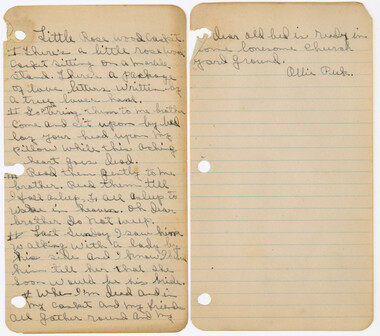 Little Rose wood Casket.
# There's a little rose wood
casket sitting on a marble
stand. There's a package
of love letters written by
a true lover hand.
# them to me brother
Come and sit upon by bed
lay your head upon my
pillow while this aching
heart goes dead.
Read them gently to me
brother. Read them till
I fall asleep, to
in heaven. Oh dear
brother do not weep.
# Last Sunday I saw him
walking with a lady by
his side and I know I
him tell her that she
soon would be his bride.
# When I'm dead and in
My casket and my friends
all gather round and my
dear old bed is ready in
some lonesome church
yard ground.
Ollie